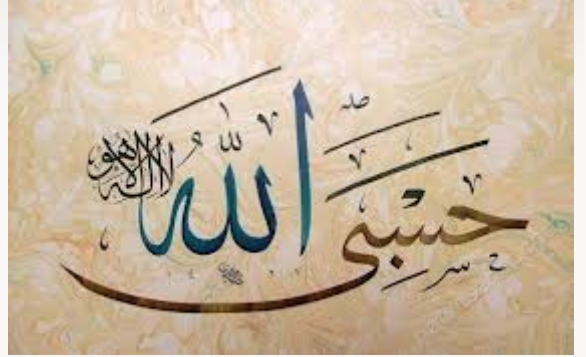 حَسْبِيَ اللّٰهُ
لا إله إلا هو